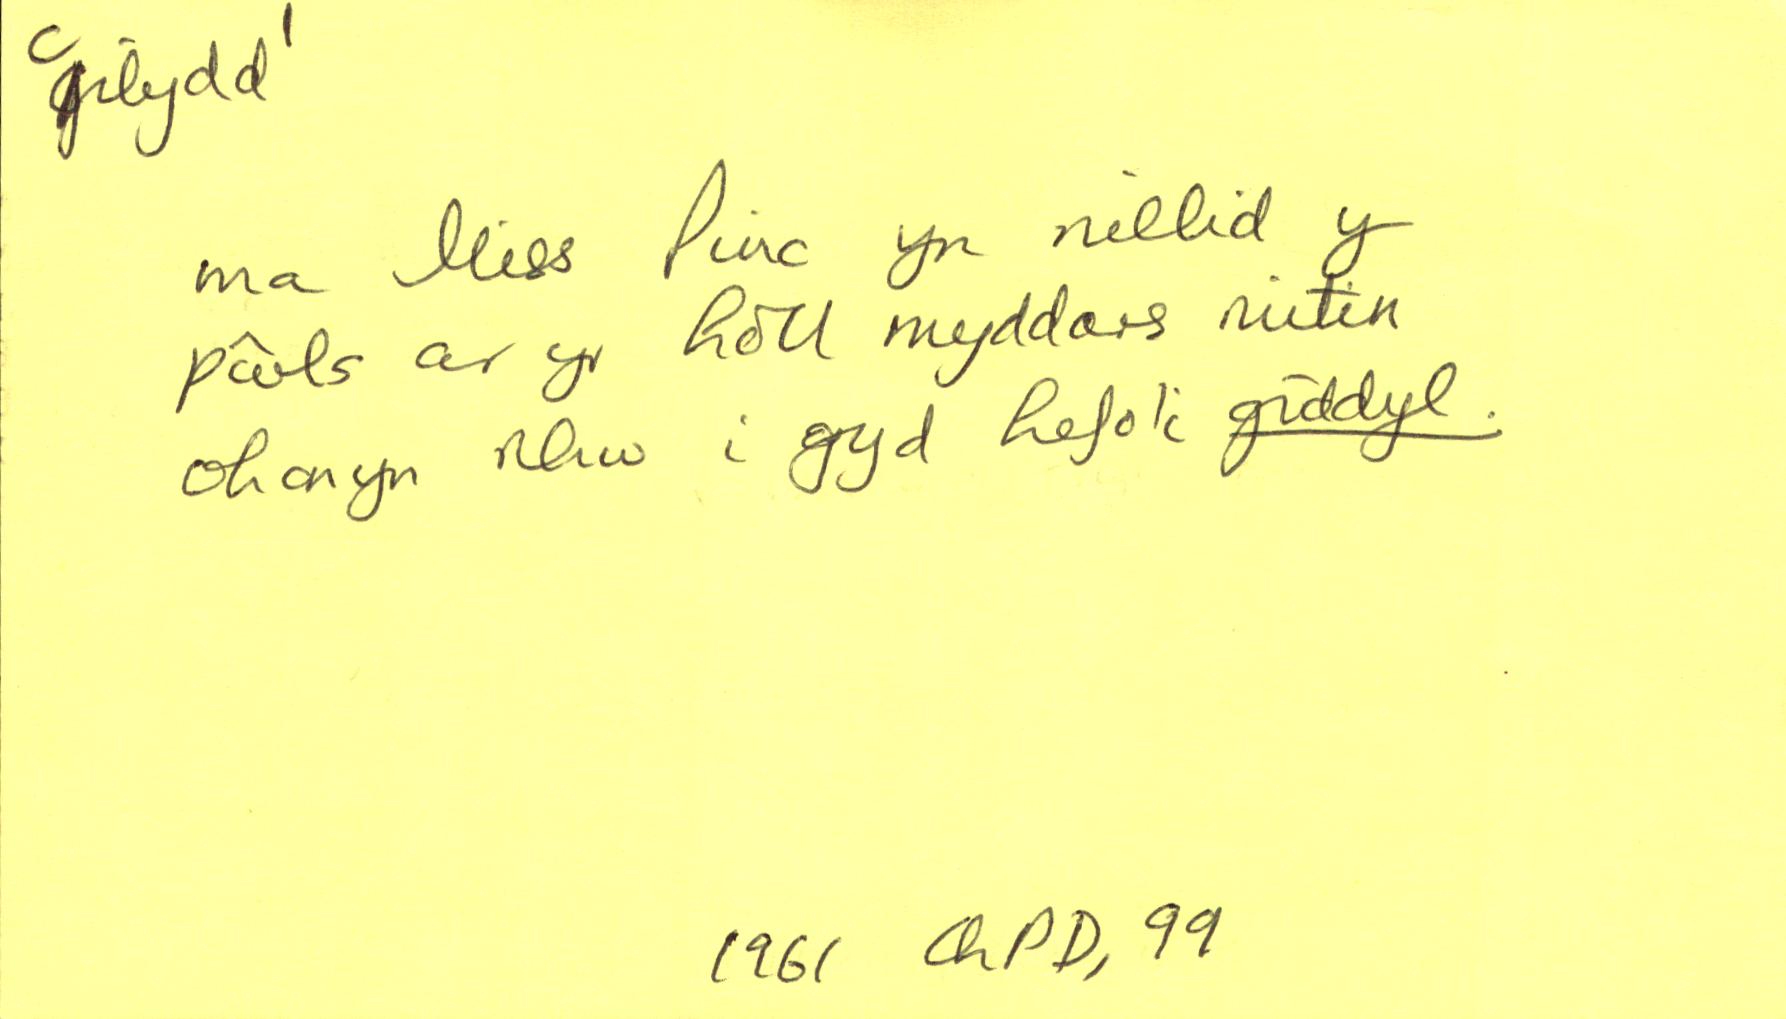 'gilydd'
ma Miss Pinc yn nillid y
pâwls ar yr hôll myddars riitin
ohonyn nhw i gyd hefo'i giddyl.
1961 ChPD, 99